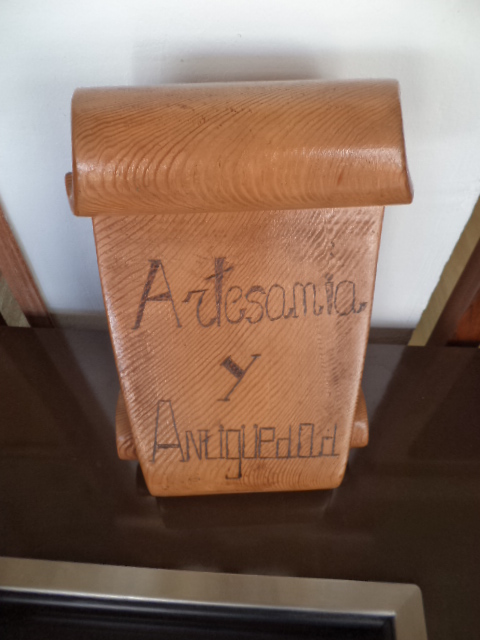 Artesania
y
Antiguedad